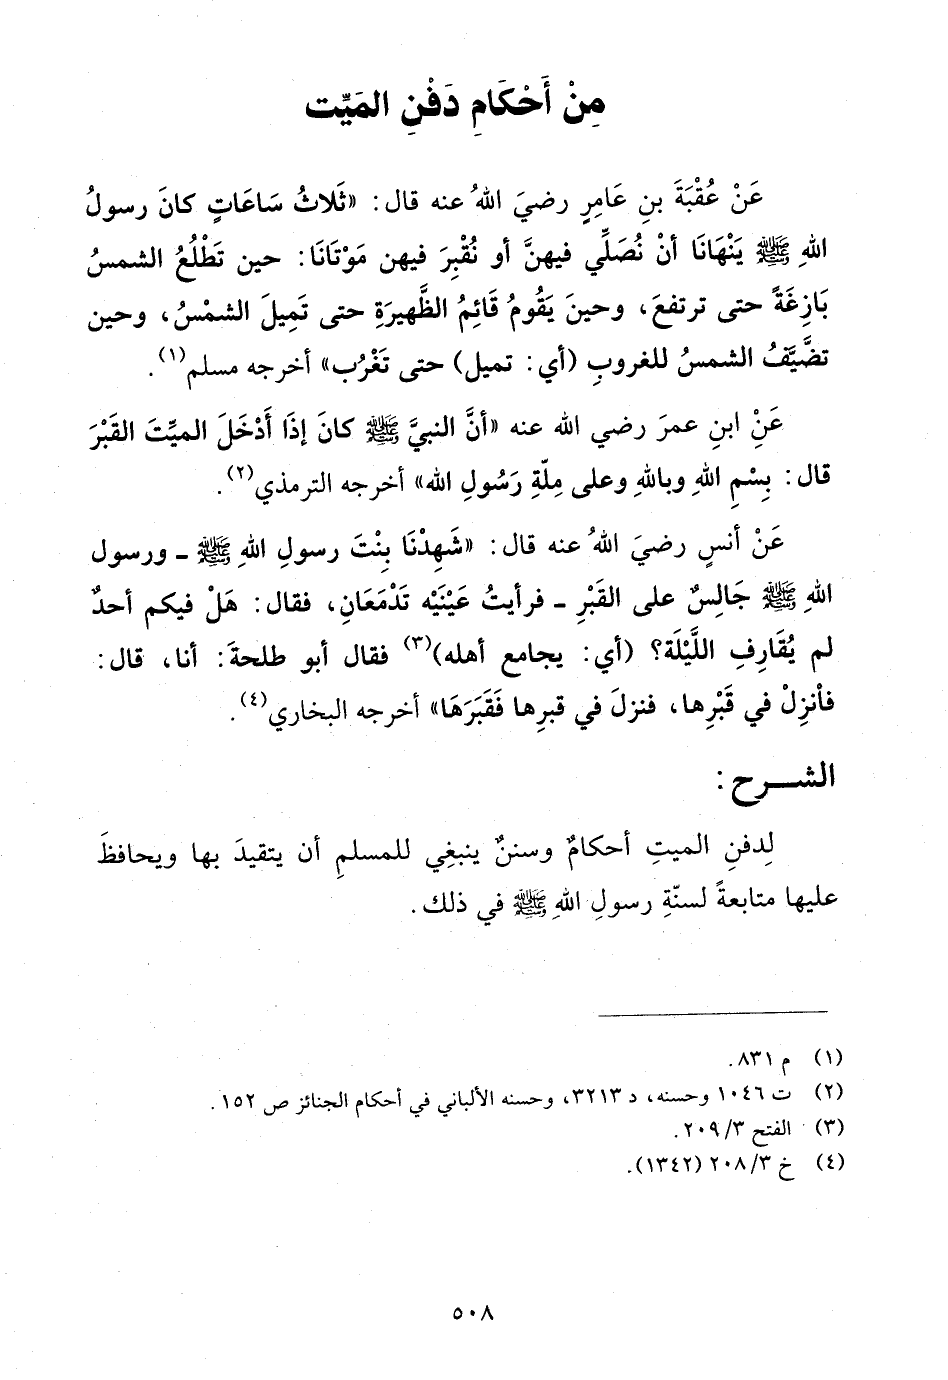 مِنْ أَحْكَامِ دَفْنِ المَيِّت
عَنْ عُقْبَةَ بنِ عَامِرٍ رضيَ اللهُ عنه قال: «ثَلاثُ سَاعَاتٍ كانَ رسولُ
اللهِ ﷺ يَنْهَانَا أنْ نُصَلِّي فيهنَّ أو نُقْبِرَ فيهن مَوْتَانَا: حين تَطْلُعُ الشمسُ
بَازِغَةً حتى ترتفعَ، وحينَ يَقُومُ قَائِمُ الظَّهيرَةِ حتى تَمِيلَ الشمْسُ، وحين
تضَّيَّفُ الشمسُ للغروبِ (أي: تميل) حتى تَغْرُب» أخرجه مسلم(١).
عَنِ ابنِ عمرَ رضي الله عنه «أنَّ النبيَّ ﷺ كانَ إذَا أَدْخَلَ الميِّتَ القَبْرَ
قال: بِسْمِ اللهِ وباللهِ وعلى مِلّةِ رَسُولِ الله» أخرجه الترمذي(٢).
عَنْ أنسٍ رضيَ اللهُ عنه قال: «شَهِدْنَا بِنْتَ رسولِ اللهِ ﷺ ـ ورسول
اللهِ ﷺ جَالِسٌ على القَبْرِ ـ فرأيتُ عَيْنَيْه تَدْمَعَانِ، فقال: هَلْ فيكم أحدٌ
لم يُقَارِفِ اللَّيْلَة؟ (أي: يجامع أهله)(٣) فقال أبو طلحةَ: أنا، قال:
فأنزِلْ في قَبْرِها، فنزلَ في قبرِها فَقَبَرَهَا» أخرجه البخاري(٤).
الشـــرح:
لِدفنِ الميتِ أحكامٌ وسننٌ ينبغِي للمسلمِ أن يتقيدَ بها ويحافظَ
عليها متابعةً لسنّةِ رسولِ اللهِ ﷺ في ذلك.
(١) م ٨٣١.
(٢) ت ١٠٤٦ وحسنه، د ٣٢١٣، وحسنه الألباني في أحكام الجنائز ص ١٥٢.
(٣) الفتح ٢٠٩/٣.
(٤) خ ٢٠٨/٣ (١٣٤٢).
٥٠٨